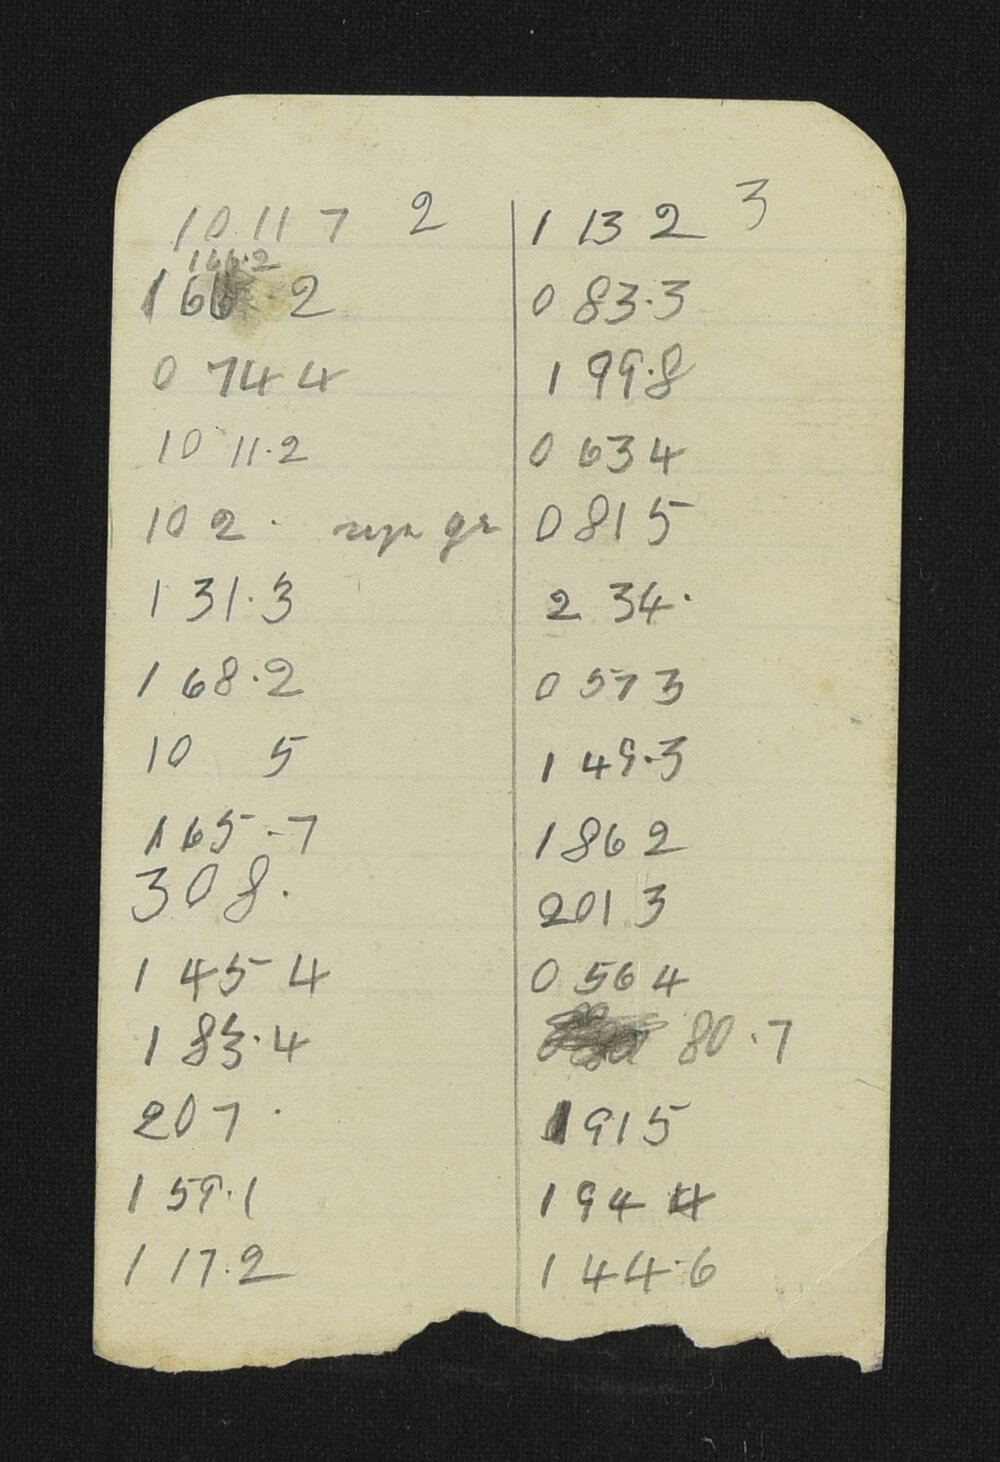 10 11 7 2
166.2
166 2
0 744
10 11.2
10 2 .
1 31.3
1 68.2
10 5
1 65.7
3 0 8.
1 45 4
1 83.4
2 0 7 .
1 59.1
1 17.2
1 13 2 3
0 83.3
1 99.8
0 634
0 81 5
2 34.
0 57 3
1 49.3
1 86 2
2 01 3
0 56 4
80.7
1 91 5
1 94 4
1 44.6